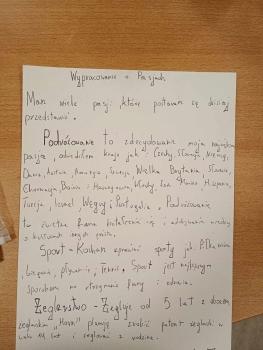 Wypracowanie o Pasjach
Mam wiele pasji które postaram się dzisiaj
przedstawić.
Podróżowanie to zdecydowanie moja największa
pasja, odwiedziłem kraje jak: Czechy, Słowacja, Niemcy,
Dania, Austria, Szwecja Wielka Brytania,
Chorwacja, Bośnia i Hercegowina, Włochy, Hiszpania,
Turcja, Izrael, Węgry i Portugalia. Podróżowanie
to świetna forma
z kulturami innych państw.
Sport - Kocham uprawiać sporty jak Piłka nożna,
bieganie, pływanie, Tenis. Sport jest najlepszym
sposobem na utrzymanie formy i zdrowia.
Żeglarstwo - Żegluję od 5 lat z obozem
żeglarskim planuję zrobić patent żeglarski w
wieku 14 lat i żeglować z rodziną.